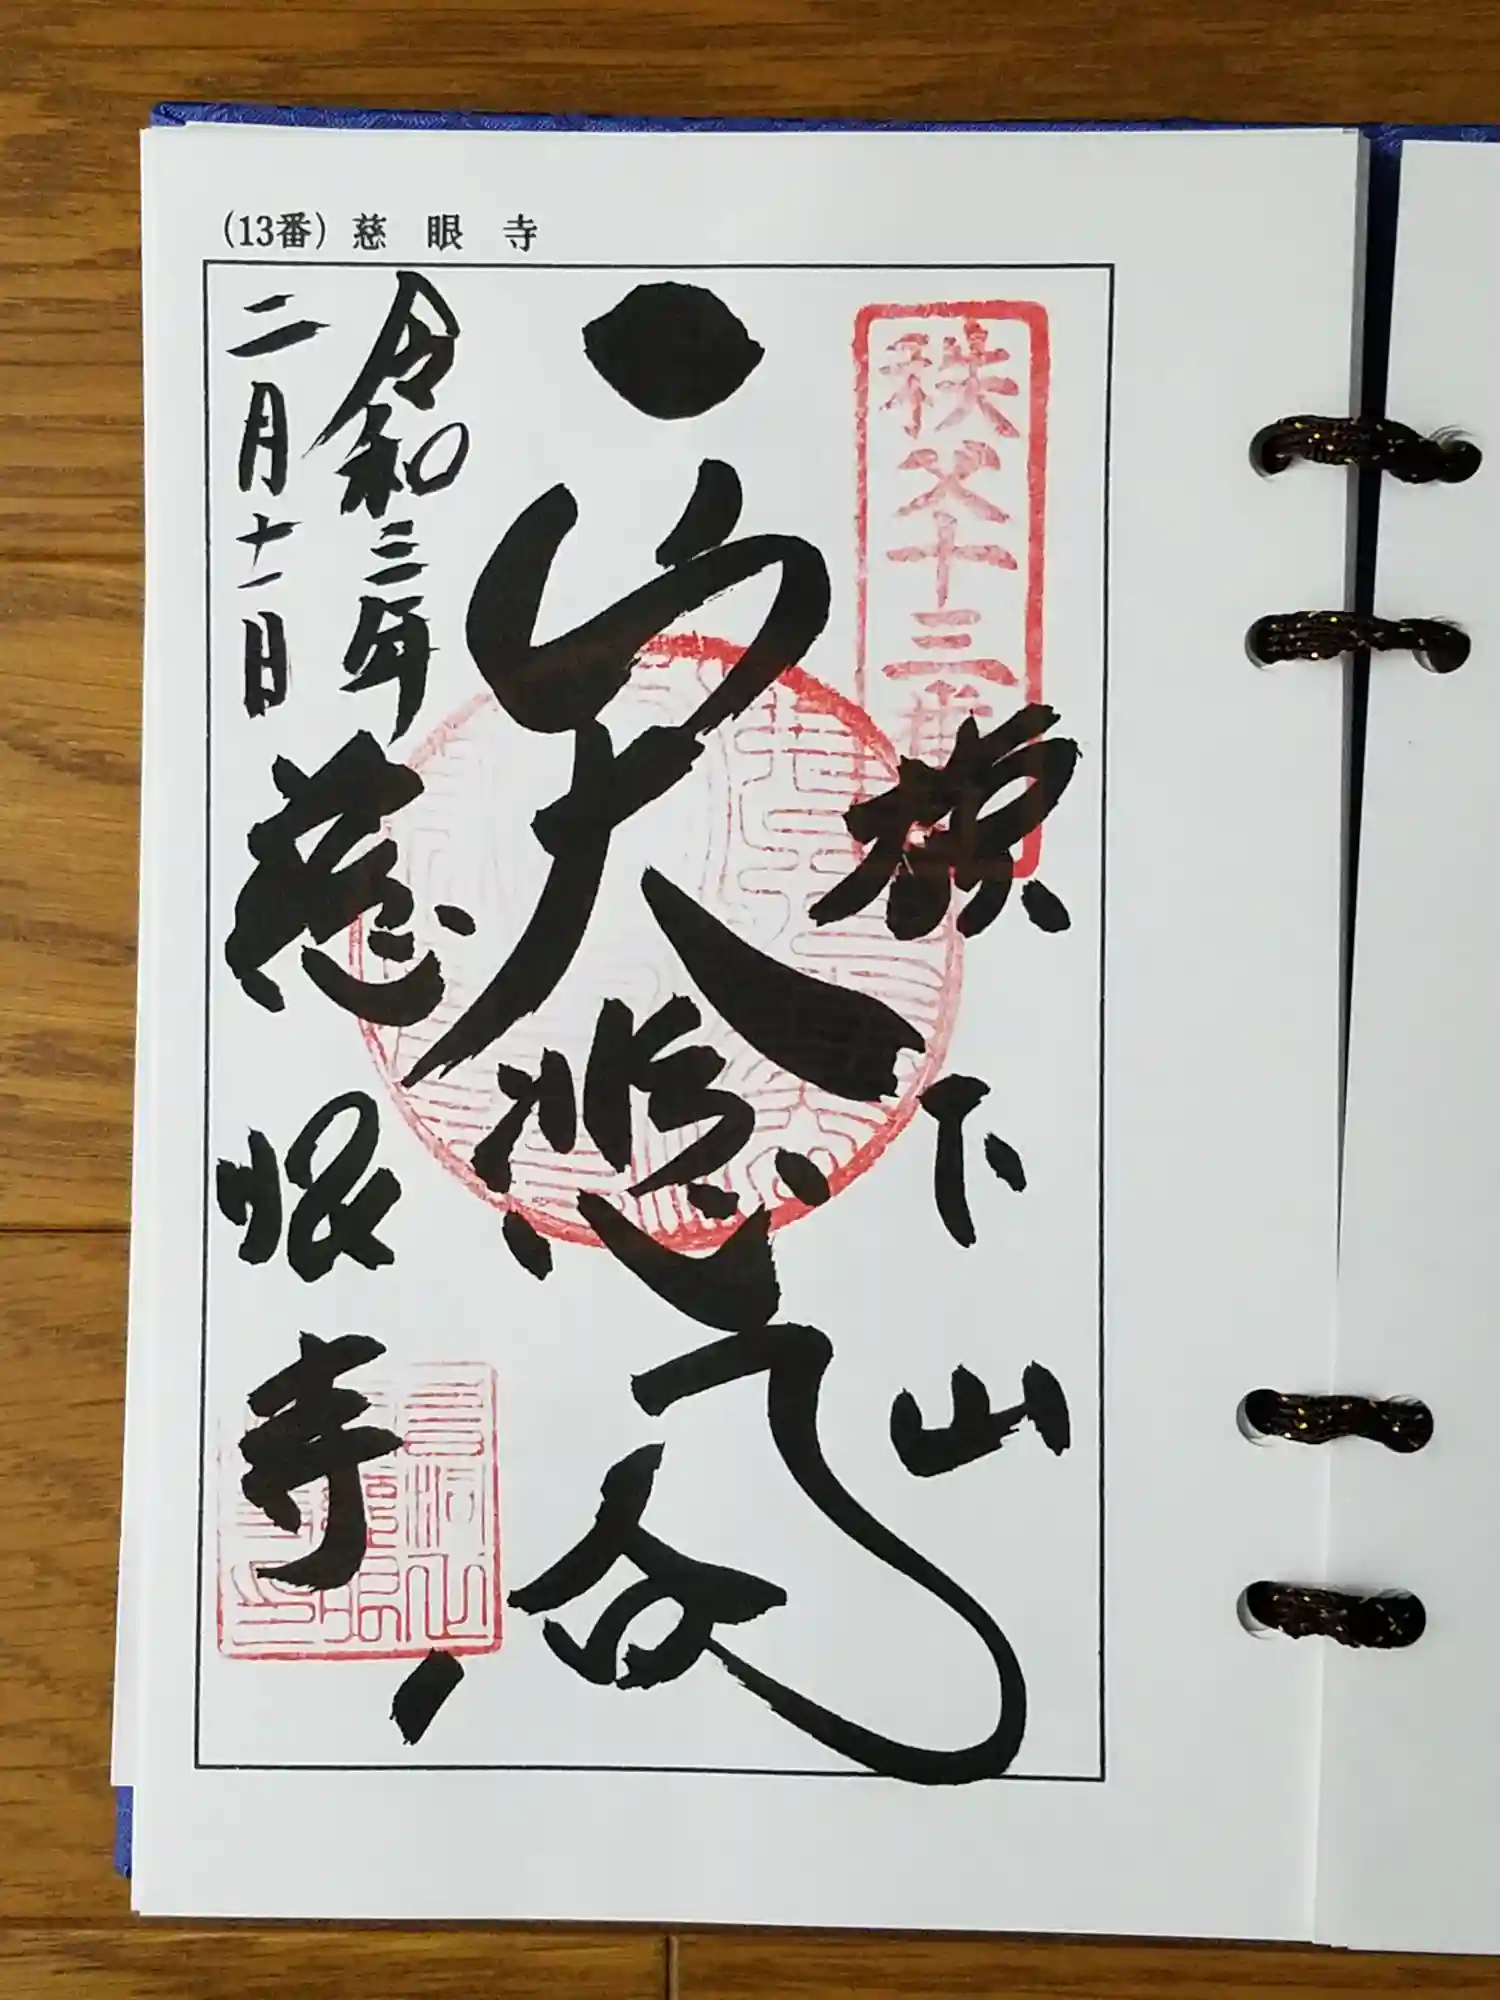 (13番) 慈眼寺
秩父十三番
旗下山
大悲閣
令和三年
二月十一日
慈眼寺